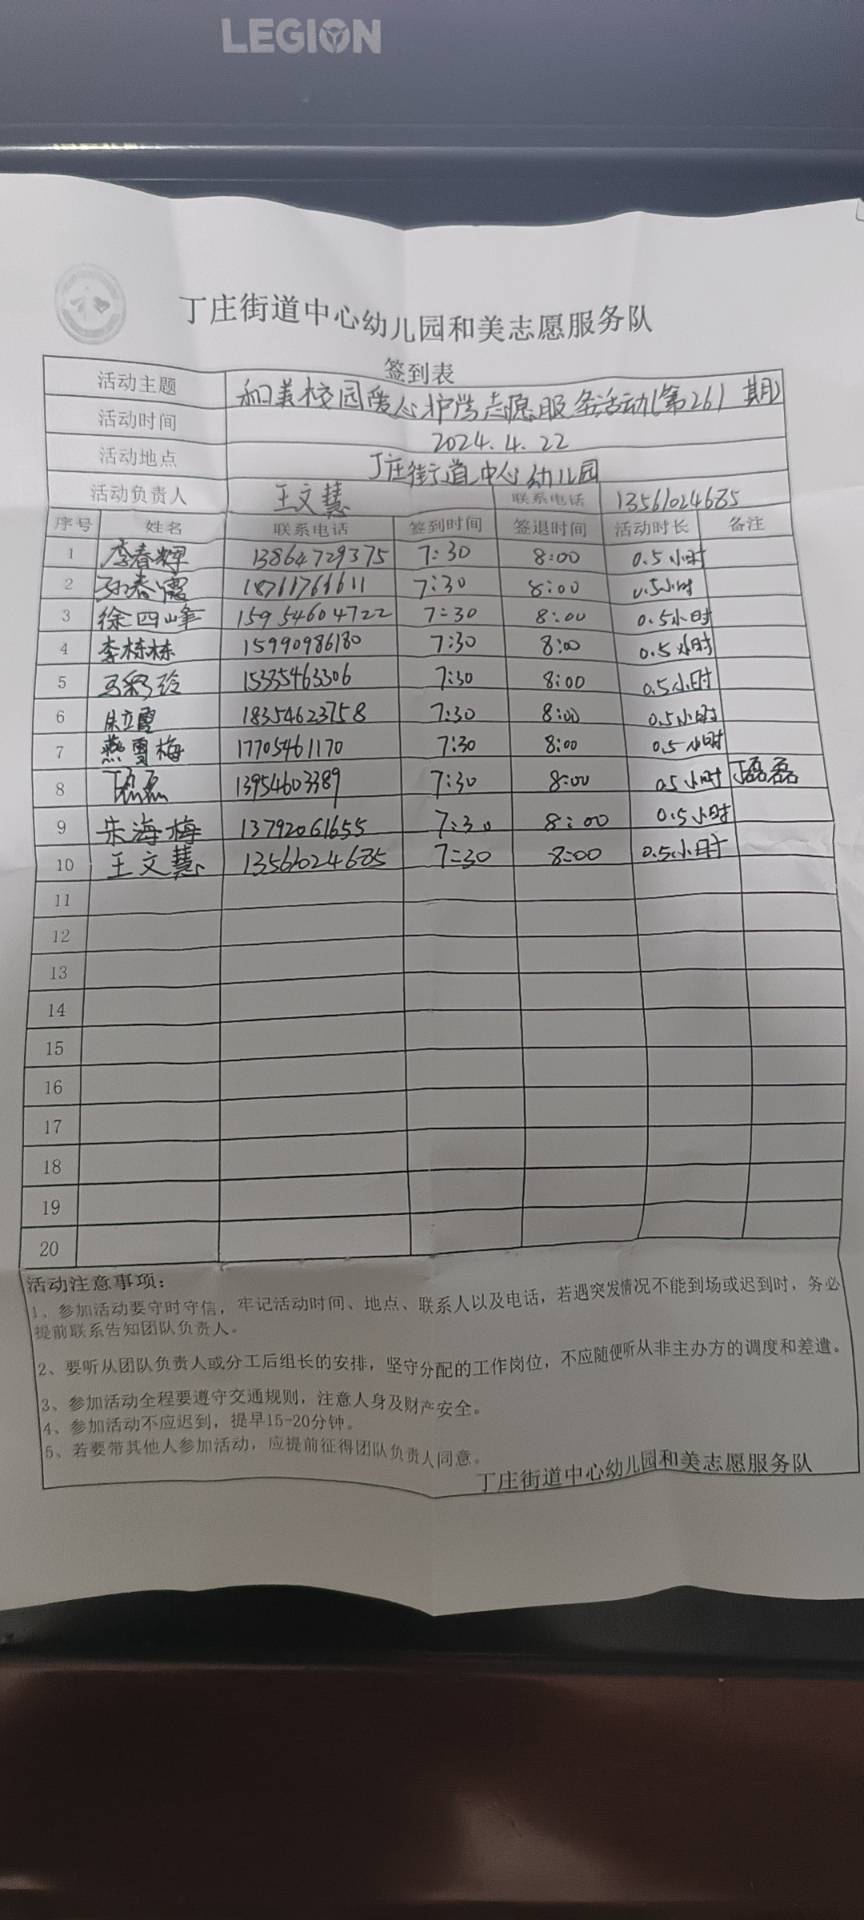 LEGION
丁庄街道中心幼儿园和美志愿服务队
签到表
活动主题 和美校园爱心护学志愿服务活动(第261期)
活动时间 2024.4.22
活动地点 丁庄街道中心幼儿园
活动负责人 王文慧 联系电话 13561024685
序号 姓名 联系电话 签到时间 签退时间 活动时长 备注
1 李春辉 13864729375 7:30 8:00 0.5小时
2 孙春霞 18761766611 7:30 8:00 0.5小时
3 徐四峰 15954604722 7:30 8:00 0.5小时
4 李栋栋 15990986180 7:30 8:00 0.5小时
5 彩玲 15335463306 7:30 8:00 0.5小时
6 18354623758 7:30 8:00 0.5小时
7 燕雪梅 17705461170 7:30 8:00 0.5小时
8 丁磊磊 13954603389 7:30 8:00 0.5小时 丁磊磊
9 朱海梅 13792061655 7:30 8:00 0.5小时
10 王文慧 13561024685 7:30 8:00 0.5小时
11
12
13
14
15
16
17
18
19
20
活动注意事项：
1、参加活动要守时守信，牢记活动时间、地点、联系人以及电话，若遇突发情况不能到场或迟到时，务必
提前联系告知团队负责人。
2、要听从团队负责人或分工后组长的安排，坚守分配的工作岗位，不应随便听从非主办方的调度和差遣。
3、参加活动全程要遵守交通规则，注意人身及财产安全。
4、参加活动不应迟到，提早15-20分钟。
5、若要带其他人参加活动，应提前征得团队负责人同意。
丁庄街道中心幼儿园和美志愿服务队